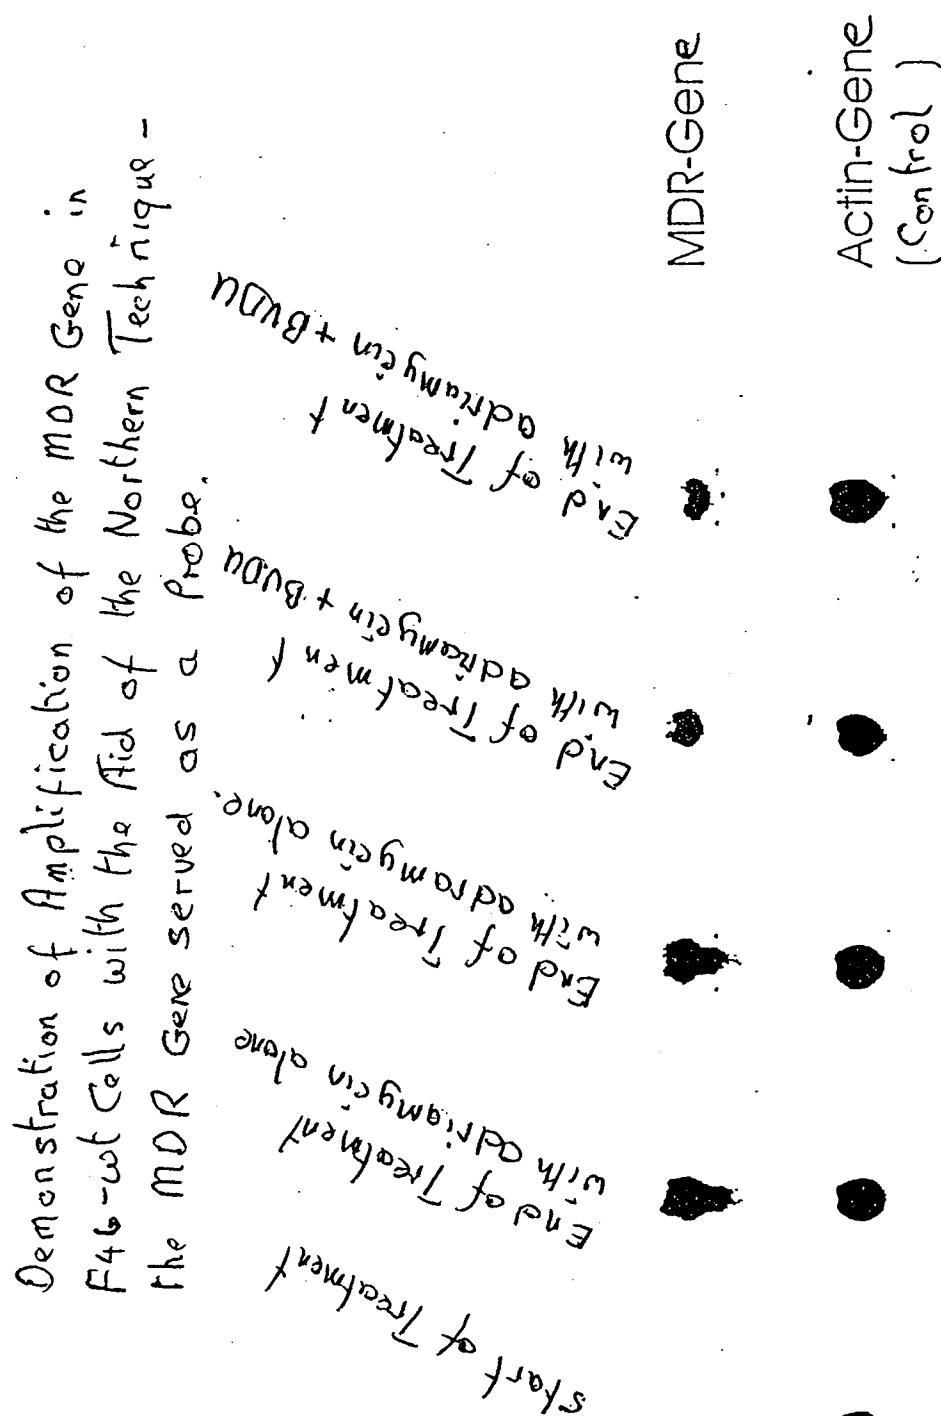 Demonstration of Amplification of the MDR Gene in
F46-wt Cells with the Aid of the Northern Technique -
the MDR Gene served as a Probe.
Start of Treatment
End of Treatment
with adriamycin alone
End of Treatment
with adramycin alone.
End of Treatment
with adriamycin + BVDU
End of Treatment
with adriamycin + BVDU
MDR-Gene
Actin-Gene
(Control)